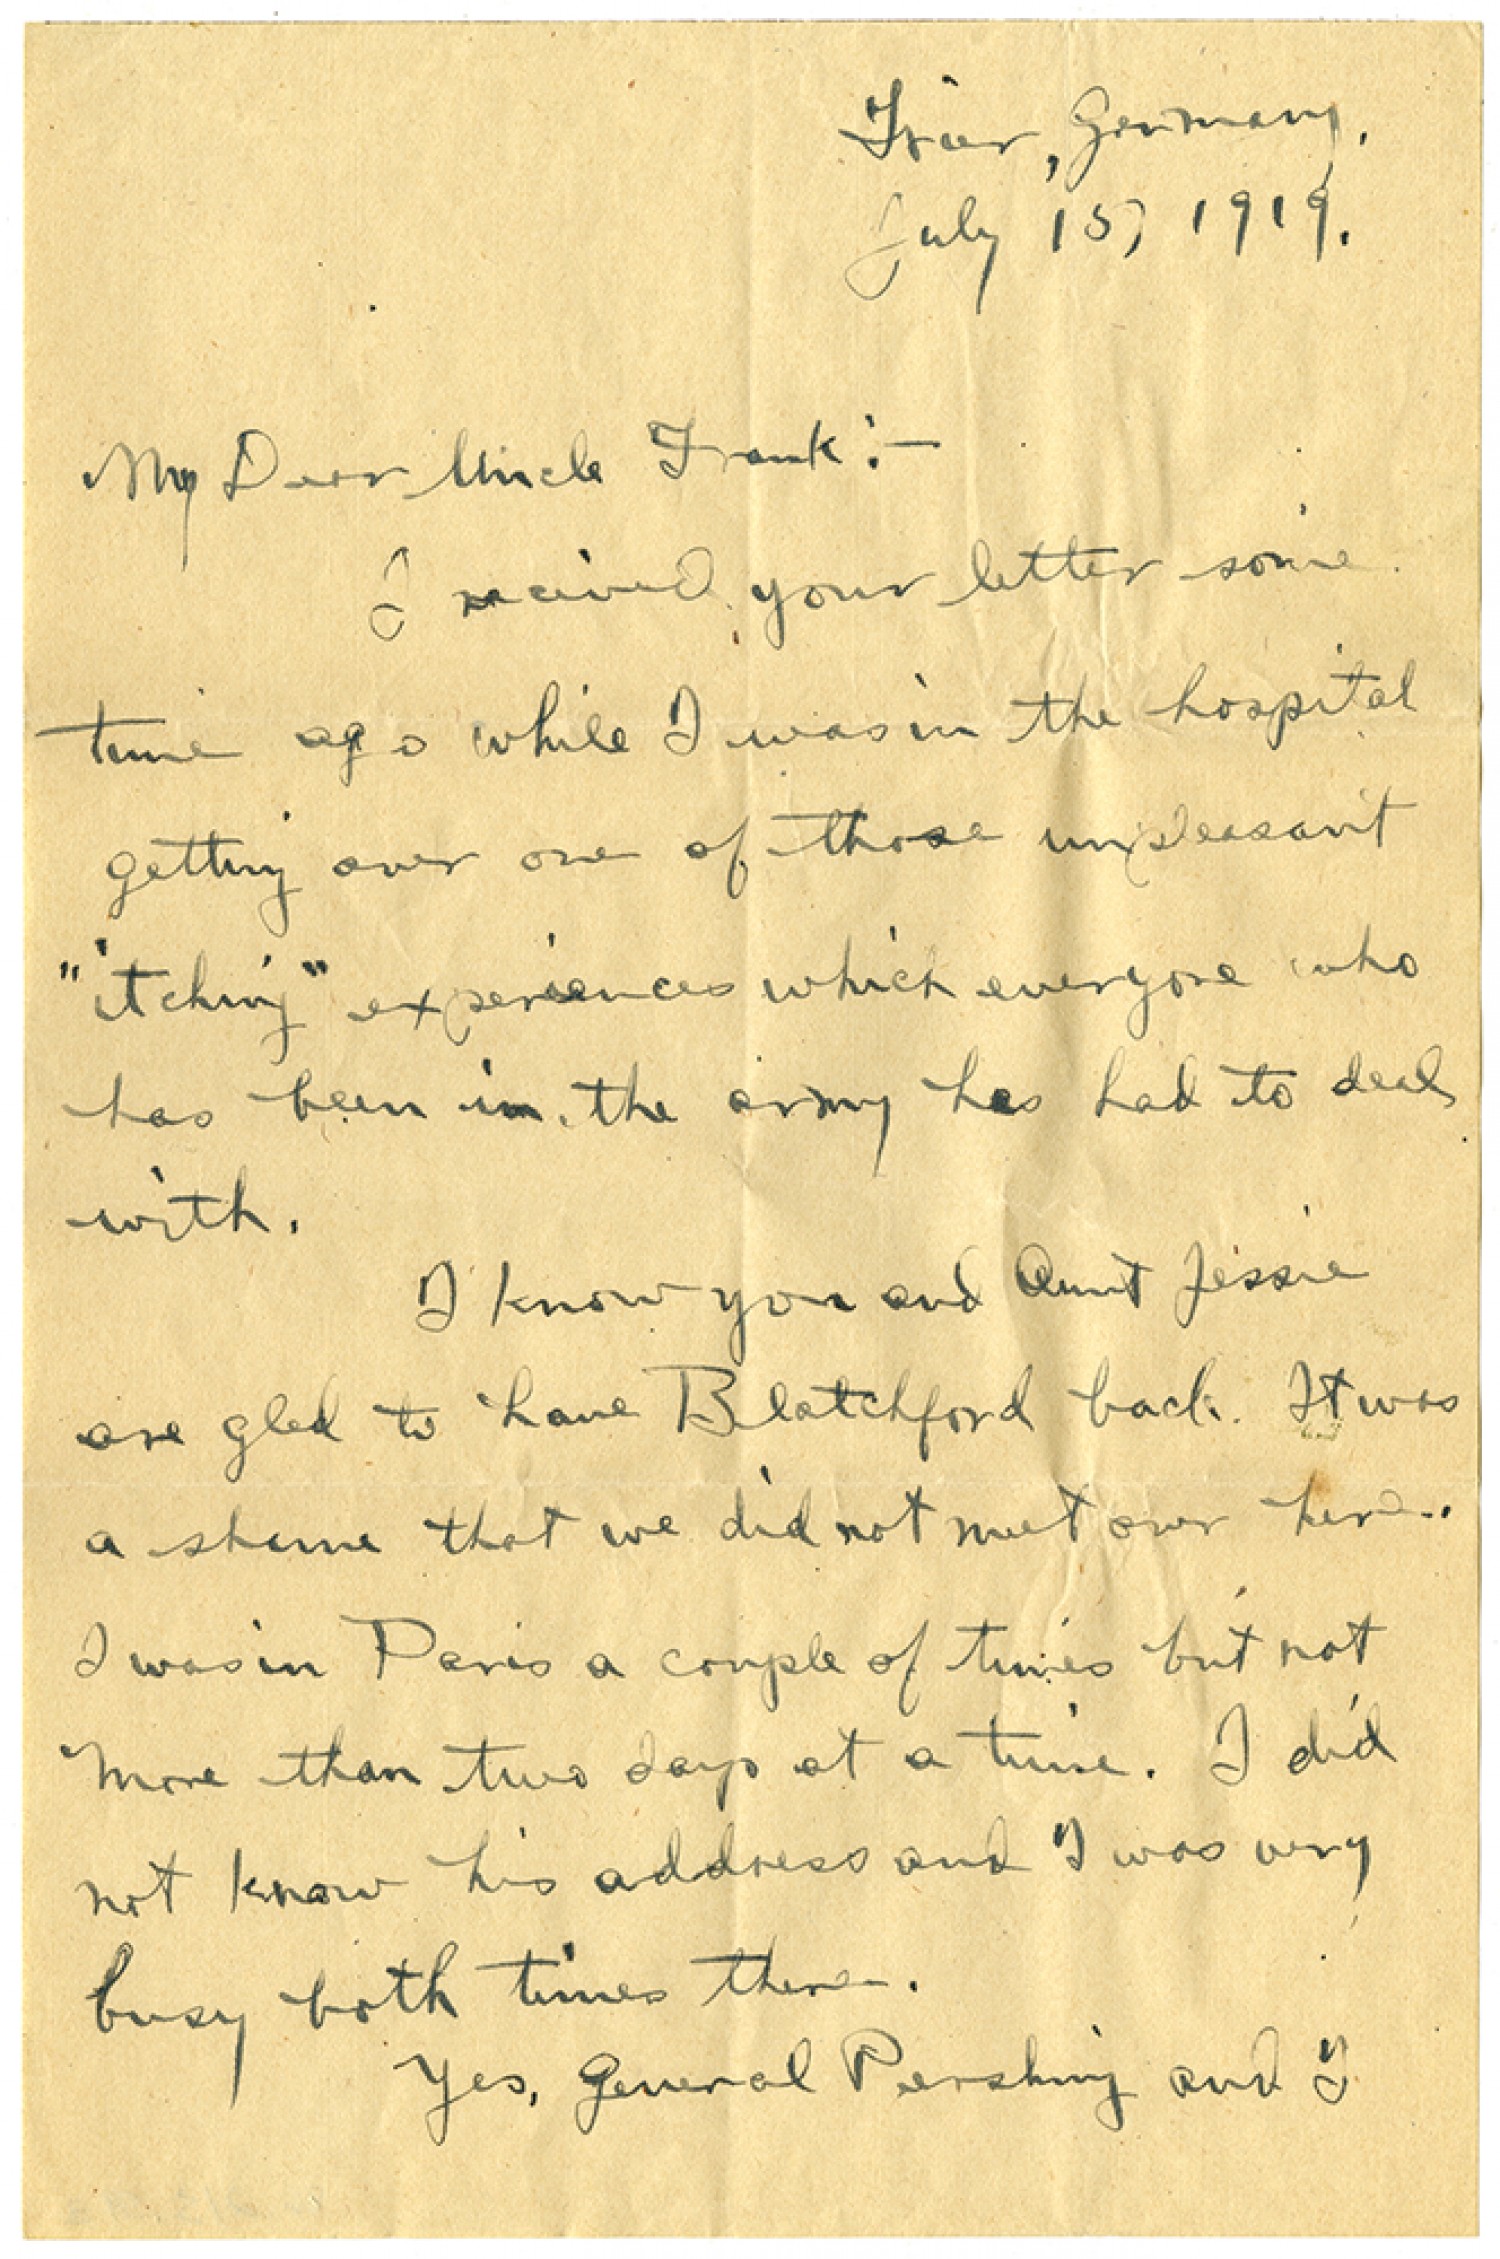 Trier, Germany.
July 15, 1919.
My Dear Uncle Frank:—
I received your letter some
time ago while I was in the hospital
getting over one of those unpleasant
"itching" experiences which everyone who
has been in the army has had to deal
with.
I know you and Aunt Jessie
are glad to have Blatchford back. It was
a shame that we did not meet over here.
I was in Paris a couple of times but not
more than two days at a time. I did
not know his address and I was very
busy both times there.
Yes, General Pershing and I